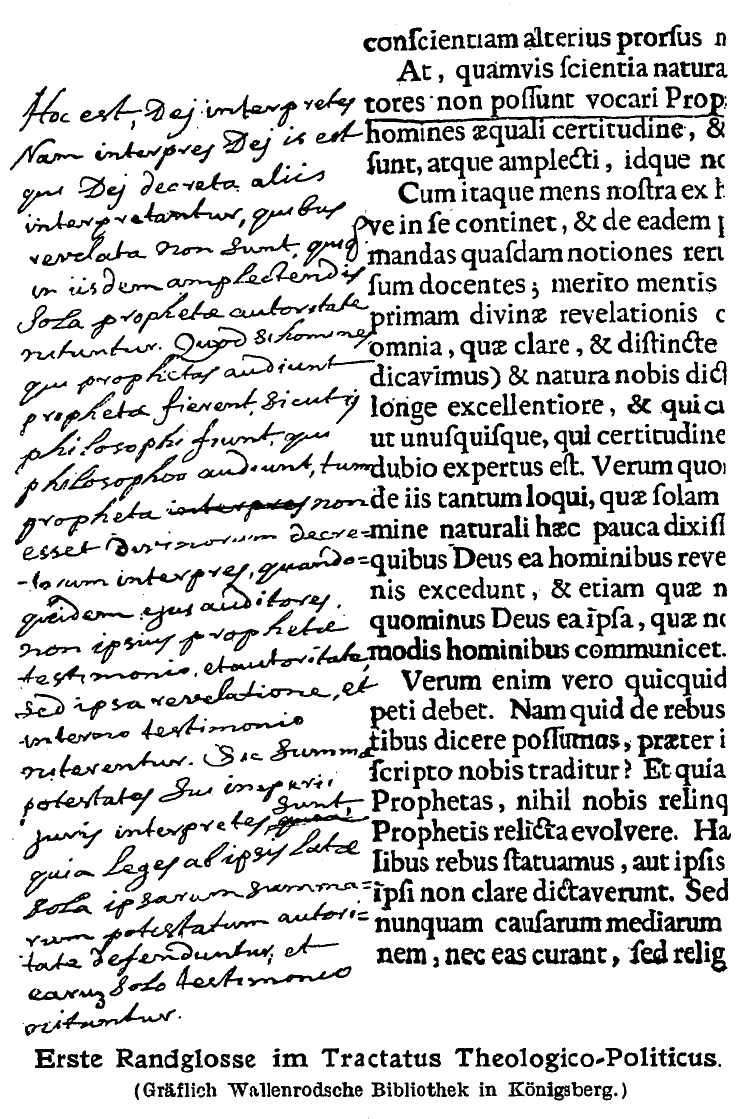 Hoc est, Dej interpretes
Nam interpres Dej is est
qui Dej decreta aliis
interpretantur, quibus
revelata non sunt, quiq
in iisdem amplectendis
sola prophetæ autoritate
nituntur. Quod si homines
qui prophetas audiunt
prophetæ fierent, sicut ij
philosophi fiunt, qui
philosophos audiunt, tum
propheta interpres non
esset divinorum decre=
-torum interpres, quando=
quidem ejus auditores,
non ipsius prophetæ
testimonio, et autoritate,
sed ipsa revelatione, et
interno testimonio
niterentur. Sic summæ
potestates sui imperii
juris interpretes sunt,
quia leges ab ipsis latæ
sola ipsarum summa=
rum potestatum autori=
tate defenduntur, et
earum solo testimonio
nituntur.
conſcientiam alterius prorſus n
At, quamvis ſcientia natura
tores non poſſunt vocari Prop
homines æquali certitudine, &
ſunt, atque amplecti, idque no
Cum itaque mens noſtra ex h
ve in ſe continet, & de eadem p
mandas quaſdam notiones reru
ſum docentes; merito mentis
primam divinæ revelationis c
omnia, quæ clare, & diſtincte
dicavimus) & natura nobis dict
longe excellentiore, & qui cu
ut unuſquiſque, qui certitudine
dubio expertus eſt. Verum quo
de iis tantum loqui, quæ ſolam
mine naturali hæc pauca dixiſſ
quibus Deus ea hominibus reve
nis excedunt, & etiam quæ n
quominus Deus ea ipſa, quæ no
modis hominibus communicet.
Verum enim vero quicquid
peti debet. Nam quid de rebus
tibus dicere poſſumus, præter i
ſcripto nobis traditur? Et quia
Prophetas, nihil nobis relinq
Prophetis relicta evolvere. Ha
libus rebus ſtatuamus, aut ipſis
ipſi non clare dictaverunt. Sed
nunquam cauſarum mediarum
nem, nec eas curant, ſed relig
Erste Randglosse im Tractatus Theologico-Politicus.
(Gräflich Wallenrodsche Bibliothek in Königsberg.)